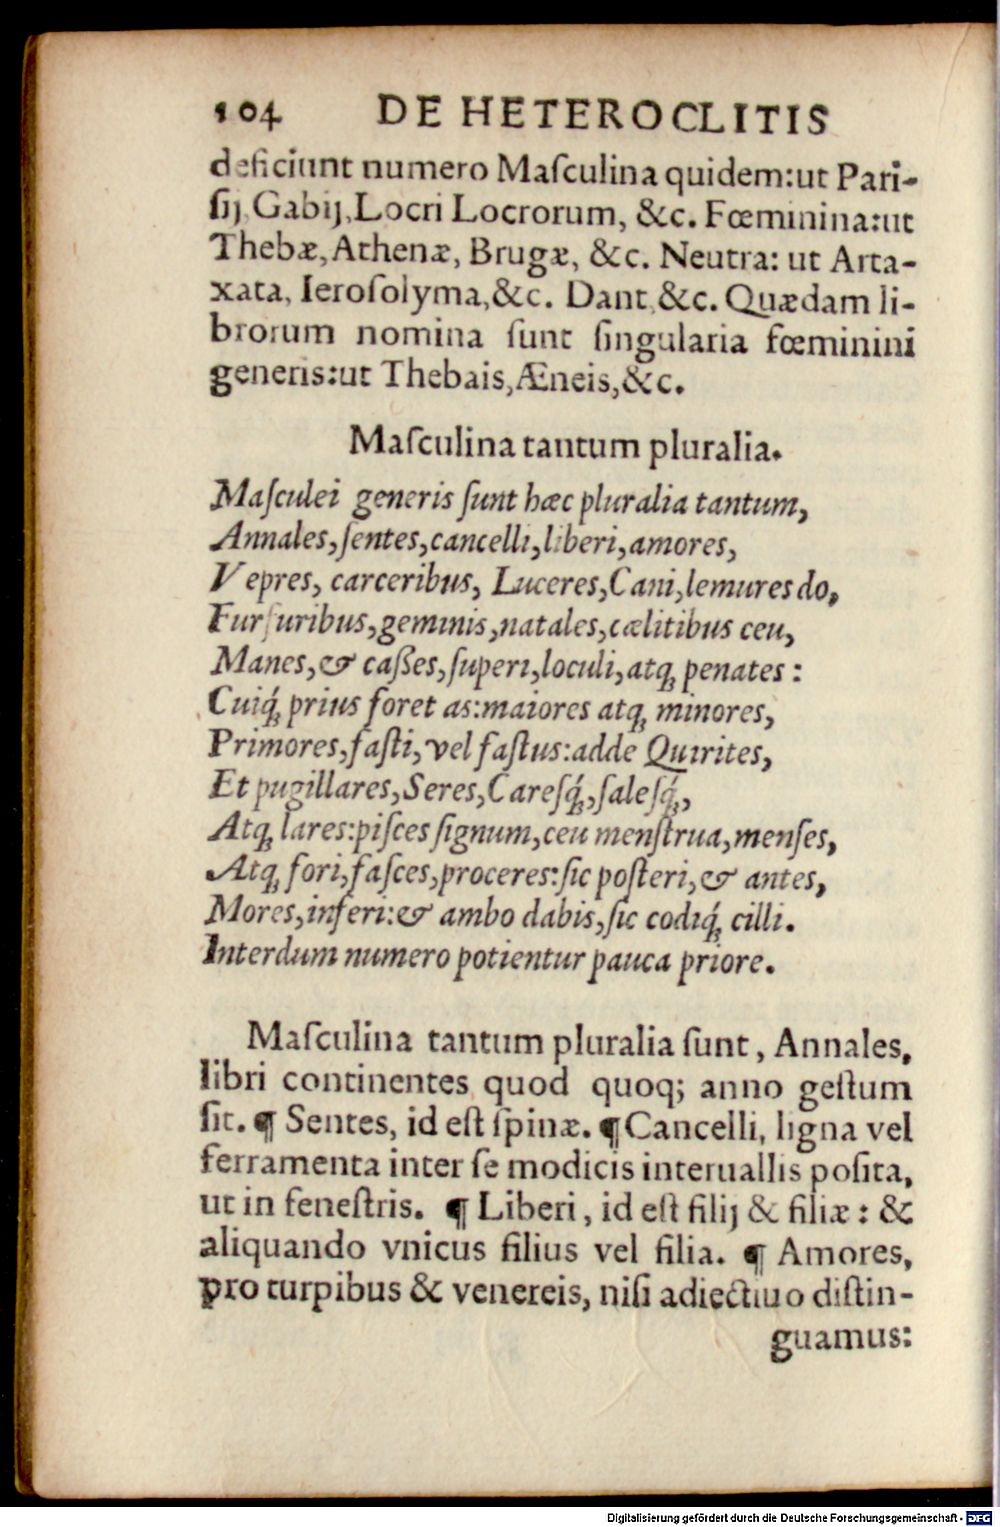 104 DE HETEROCLITIS
deficiunt numero Maſculina quidem:ut Pari-
ſij, Gabij, Locri Locrorum, &c. Fœminina:ut
Thebæ, Athenæ, Brugæ, &c. Neutra: ut Arta-
xata, Ieroſolyma,&c. Dant &c. Quædam li-
brorum nomina ſunt ſingularia fœminini
generis:ut Thebais, Æneis,&c.
Maſculina tantum pluralia.
Maſculei generis ſunt hæc pluralia tantum,
Annales, ſentes, cancelli, liberi, amores,
Vepres, carceribus, Luceres, Cani, lemures do,
Furfuribus, geminis, natales, cælitibus ceu,
Manes, & caßes, ſuperi, loculi, atq; penates :
Cuiq́; prius foret as:maiores atq; minores,
Primores, faſti, vel faſtus:adde Quirites,
Et pugillares, Seres, Careſq́;, ſaleſq́;,
Atq; lares:piſces ſignum, ceu menſtrua, menſes,
Atq; fori, faſces, proceres:ſic poſteri, & antes,
Mores, inferi:& ambo dabis, ſic codiq́; cilli.
Interdum numero potientur pauca priore.
Maſculina tantum pluralia ſunt, Annales,
libri continentes quod quoq; anno geſtum
ſit. ¶ Sentes, id eſt ſpinæ. ¶ Cancelli, ligna vel
ferramenta inter ſe modicis interuallis poſita,
ut in feneſtris. ¶ Liberi, id eſt filij & filiæ : &
aliquando vnicus filius vel filia. ¶ Amores,
pro turpibus & venereis, niſi adiectiuo diſtin-
guamus:
Digitalisierung gefördert durch die Deutsche Forschungsgemeinschaft - DFG